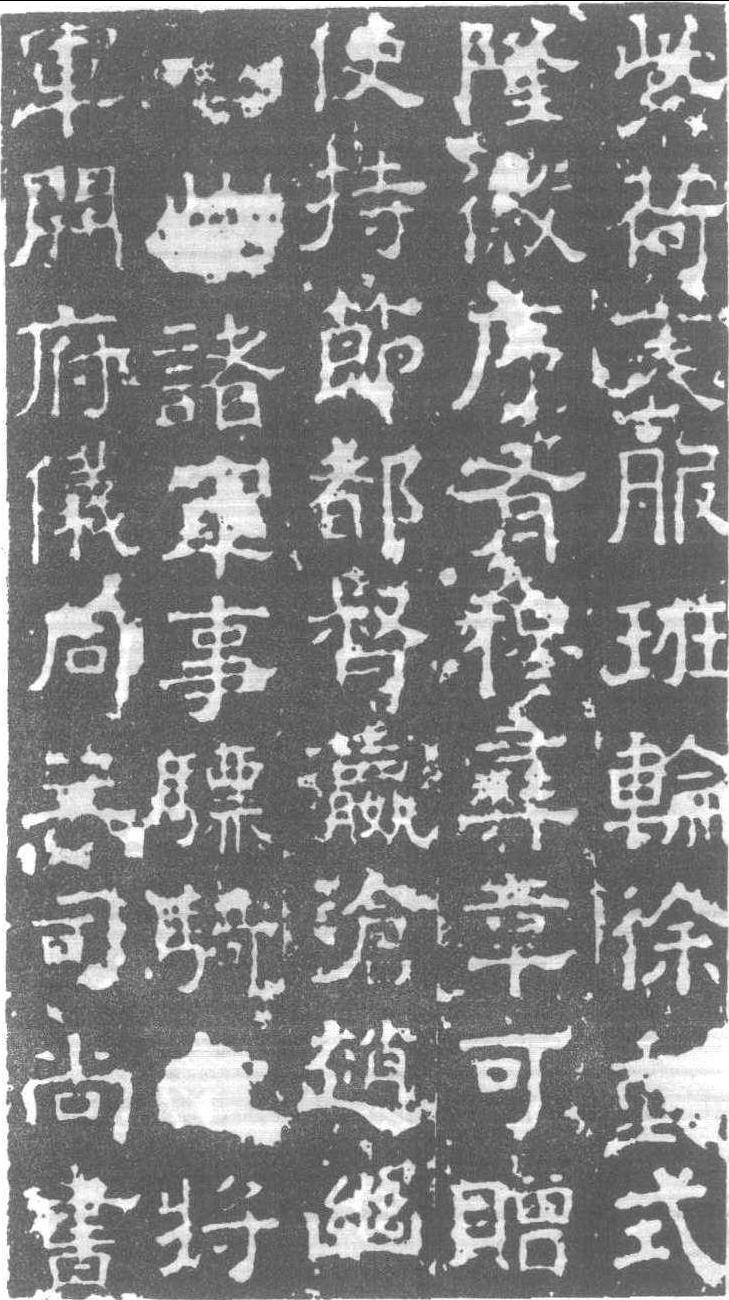 紫荷服班輪徐式
隆徽序有穆彝章可贈
使持節都督瀛滄趙幽
諸軍事驃騎將
軍開府儀同司尚書